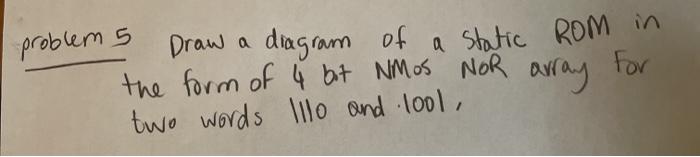 problem 5 Draw a diagram of a static ROM in
the form of 4 bit NMOS NOR array for
two words 1110 and .1001,